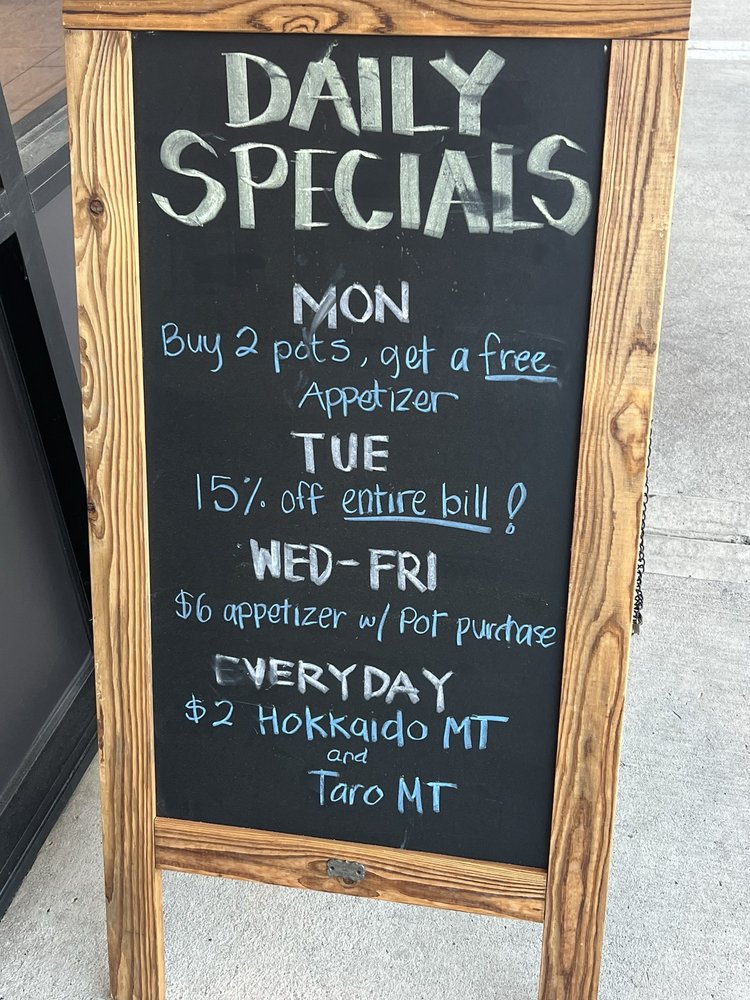 DAILY
SPECIALS
MON
Buy 2 pots, get a free
Appetizer
TUE
15% off entire bill!
WED-FRI
$6 appetizer w/ Pot purchase
EVERYDAY
$2 Hokkaido MT
and
Taro MT